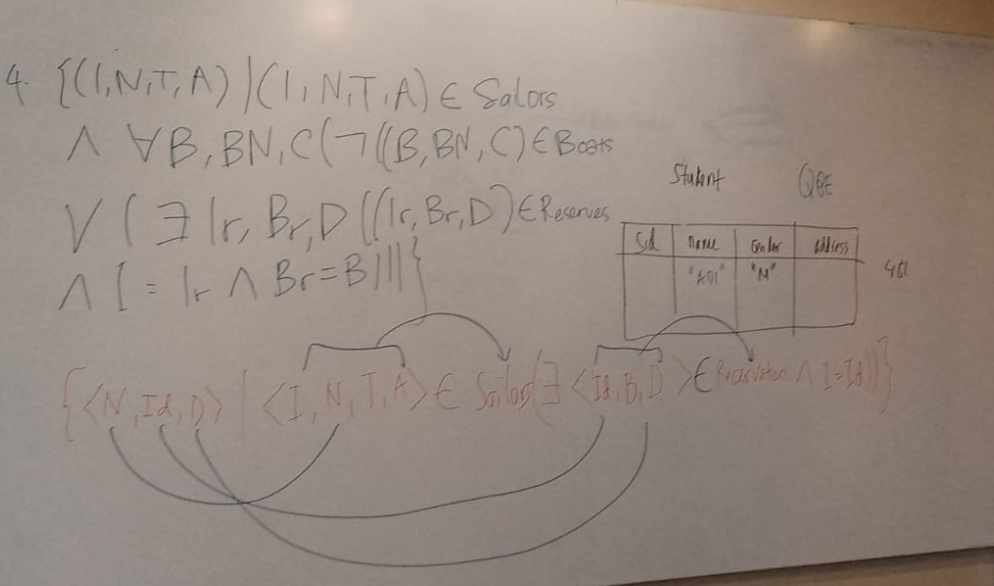 4. {(I,N,T,A) | (I,N,T,A) ∈ Sailors
∧ ∀B,BN,C(¬((B,BN,C) ∈ Boats
∨ (∃ Ir, Br, D ((Ir, Br, D) ∈ Reserves
∧ I = Ir ∧ Br = B)))}
Student QBE
Sid name Gender address
"M"
{<N, Id, D> | <I, N, T, A> ∈ Sailors (∃ <Id, B, D> ∈ Reservation ∧ I = Id))}